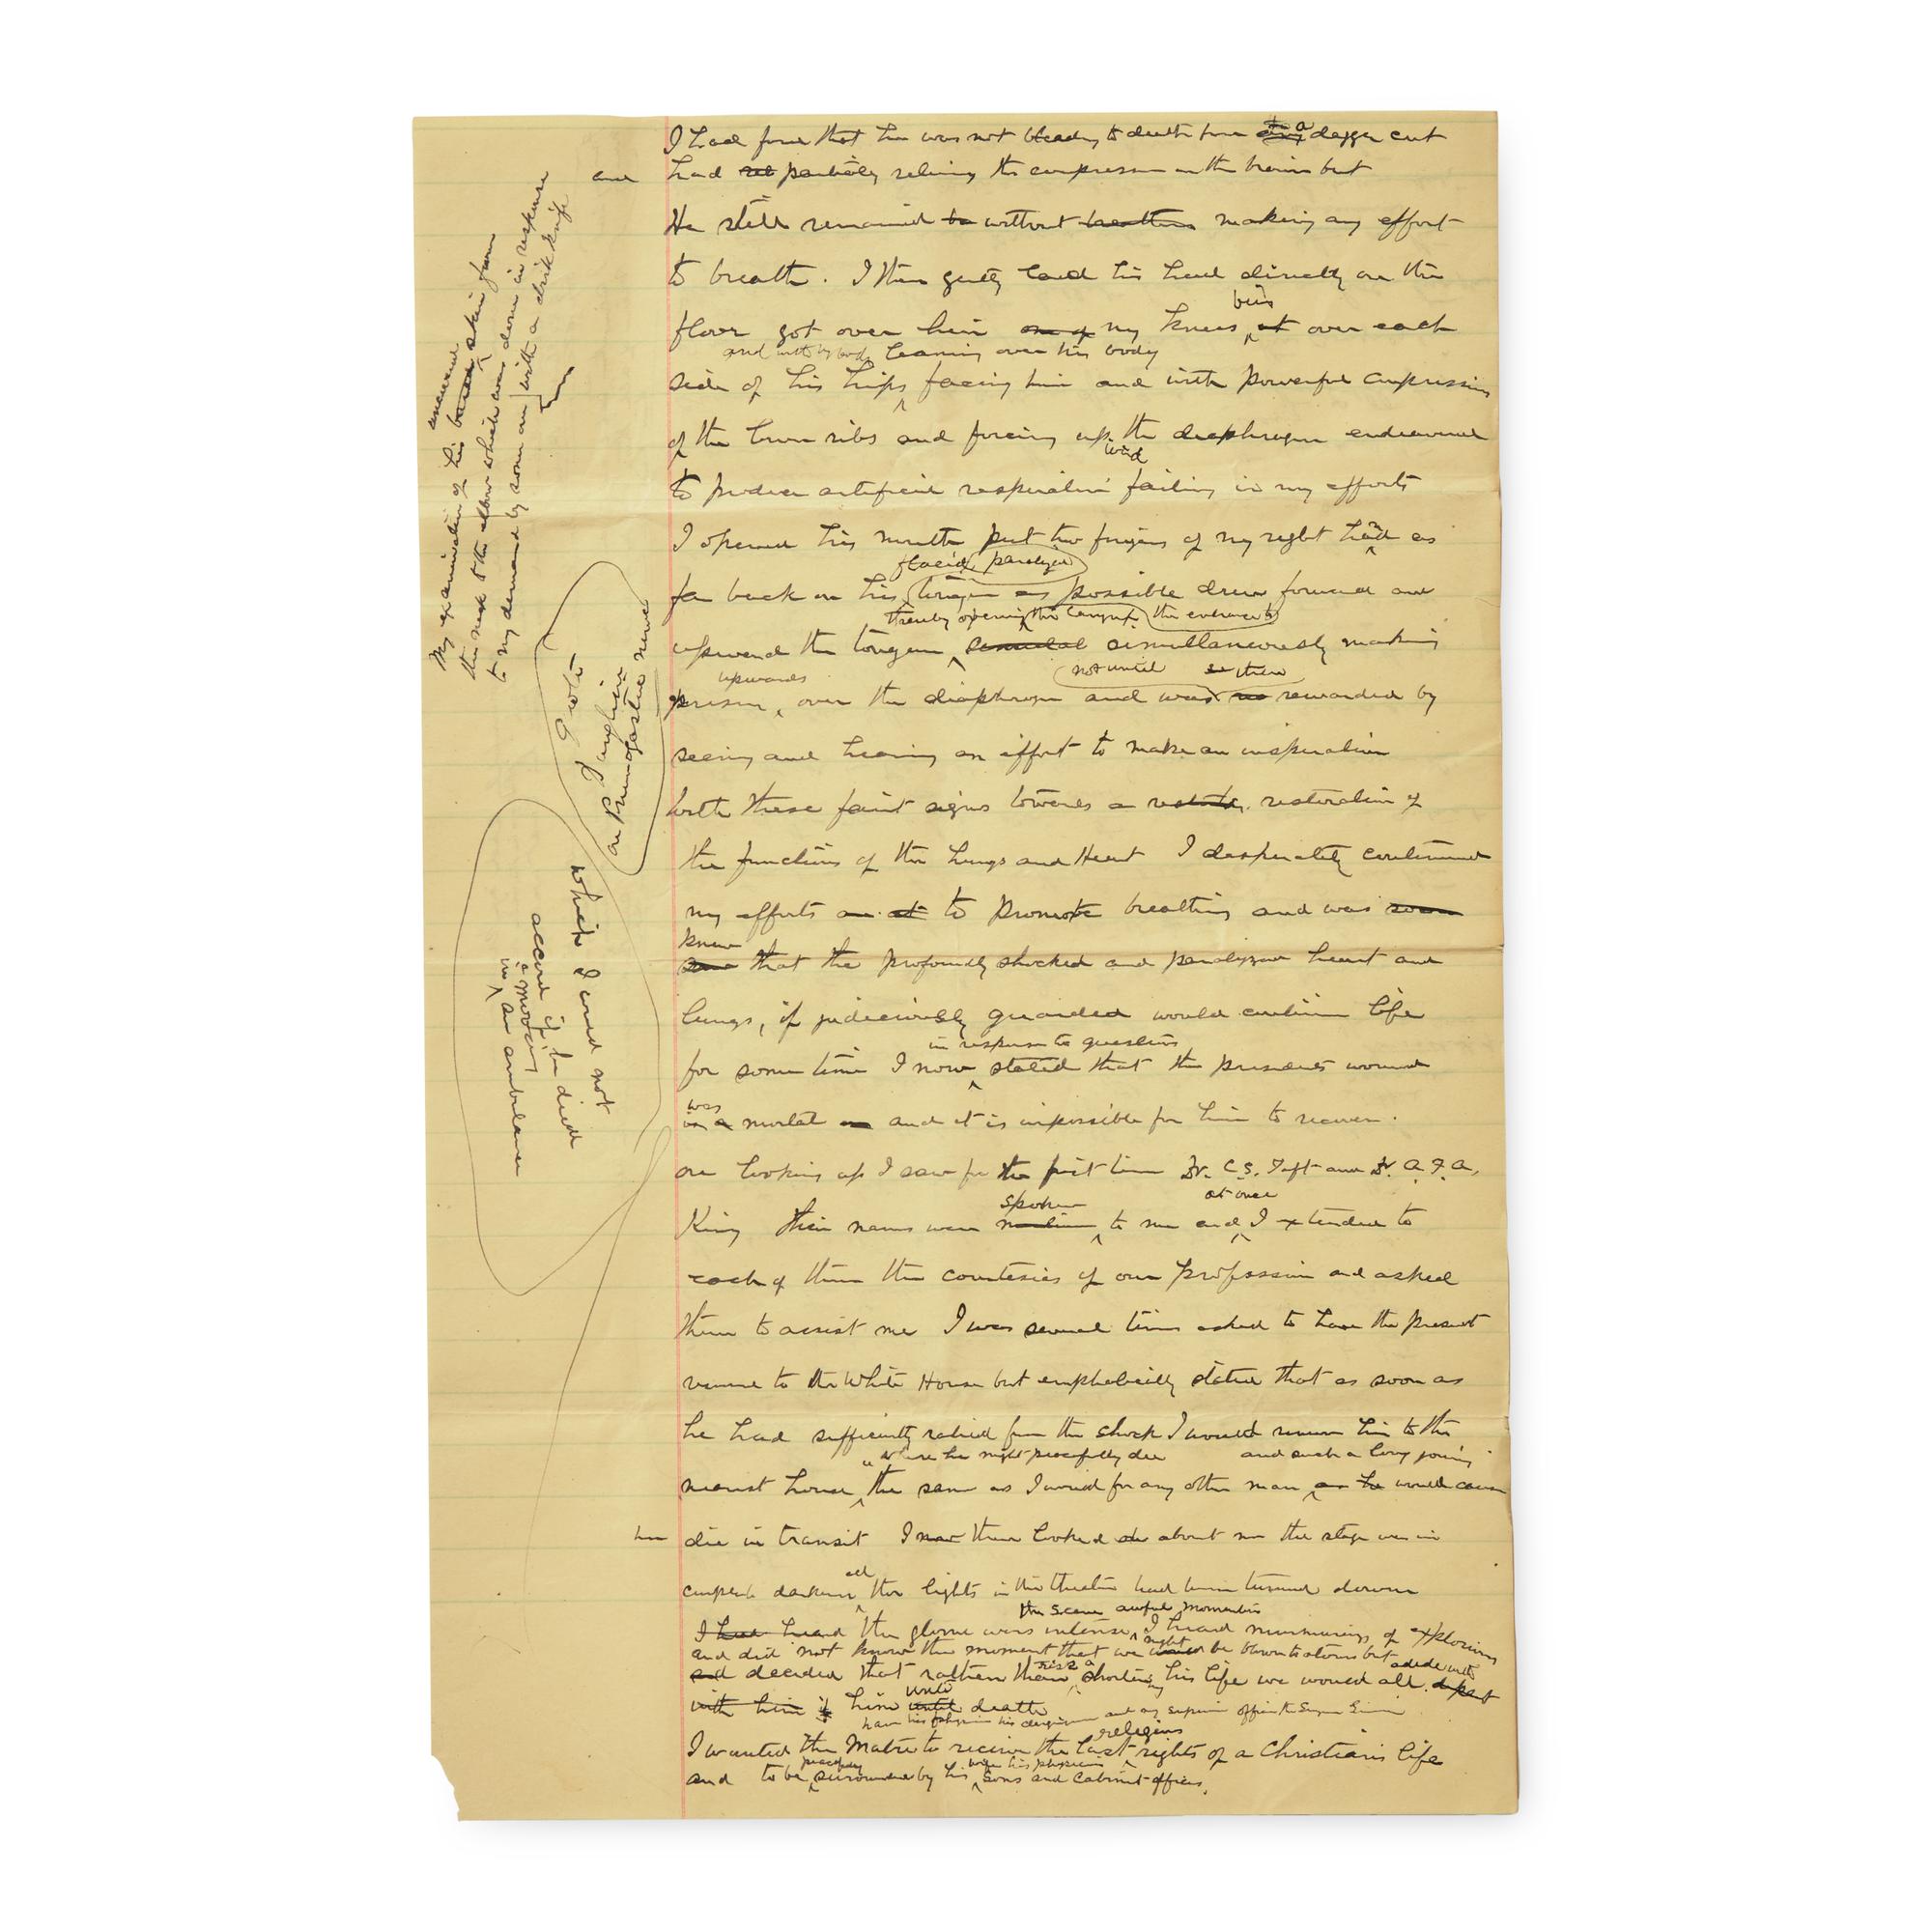 I had found that he was not bleeding to death from a dagger cut
and had partially relieving the compression on the brain but
He still remained without making any effort
to breath. I then gently laid his head directly on the
being
floor got over him my knees over each
and with my body leaning over his body
side of his hips facing him and with powerful compression
of the lower ribs and forcing up the diaphragm endeavored
wid
to produce artificial respiration failing in my efforts
I opened his mouth put two fingers of my right hand as
flacid paralyzed
far back on his tongue as possible drew forward and
thereby opening the larynx the entrance to
upward the tongue simultaneously making
upwards not until then
pressure over the diaphragm and was no rewarded by
seeing and hearing an effort to make an inspiration
with these faint signs towards a restoration of
the functions of the Lungs and Heart I desperately continued
my efforts to promote breathing and was soon
knew
that the profoundly shocked and paralyzed heart and
lungs, if judiciously guarded would continue life
in response to questions
for some time I now stated that the presidents wound
was
mortal and it is impossible for him to recover.
on looking up I saw for the first time Dr. C.S. Taft and Dr. A.F.A.
spoken at once
King their names were to me and I extended to
each of them the courtesies of our profession and asked
them to assist me I was several times asked to have the present
remove to the White House but emphatically stated that as soon as
he had sufficiently rallied from the shock I would remove him to the
where he might peacefully die and such a long joining
nearest house the same as I would for any other man as he would cause
him die in transit I then looked about me the stage was in
all
complete darkness the lights in the theatre had been turned down
the scene awful momentous
I had heard the glome was intense, I heard murmurings of explosions
might
and did not know the moment that we would be blown to atoms but abide with
risk a
and decided that rathen than shorting his life we would all depart
until
with him if him until death
have his physician his clergyman and my superior officer the Surgeon General
religious
I wanted the Matre to receive the last rights of a Christian's life
peacefully wife his physician
and to be surrounded by his sons and Cabinet officers.
My examination of his skin from
uncovered
the neck to the elbow which was done in response
to my demand by some one with a dirk knife
Quote
Ganglion
on Pneumogastric nerve
which I could not
accord if he died
a moving
in an ambulance